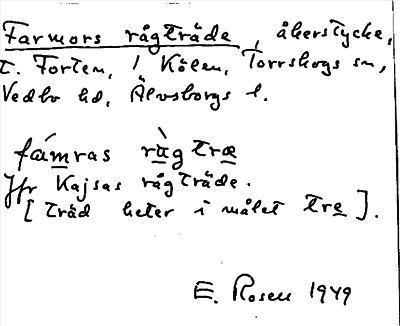 Farmors rågträde, åkerstycke,
t. Forten, i Kölen, Torrskogs sn,
Vedbo hd, Älvsborgs l.
fámras rùg træ
Jfr Kajsas rågträde.
[träd heter i målet tre].
E. Rosen 1949